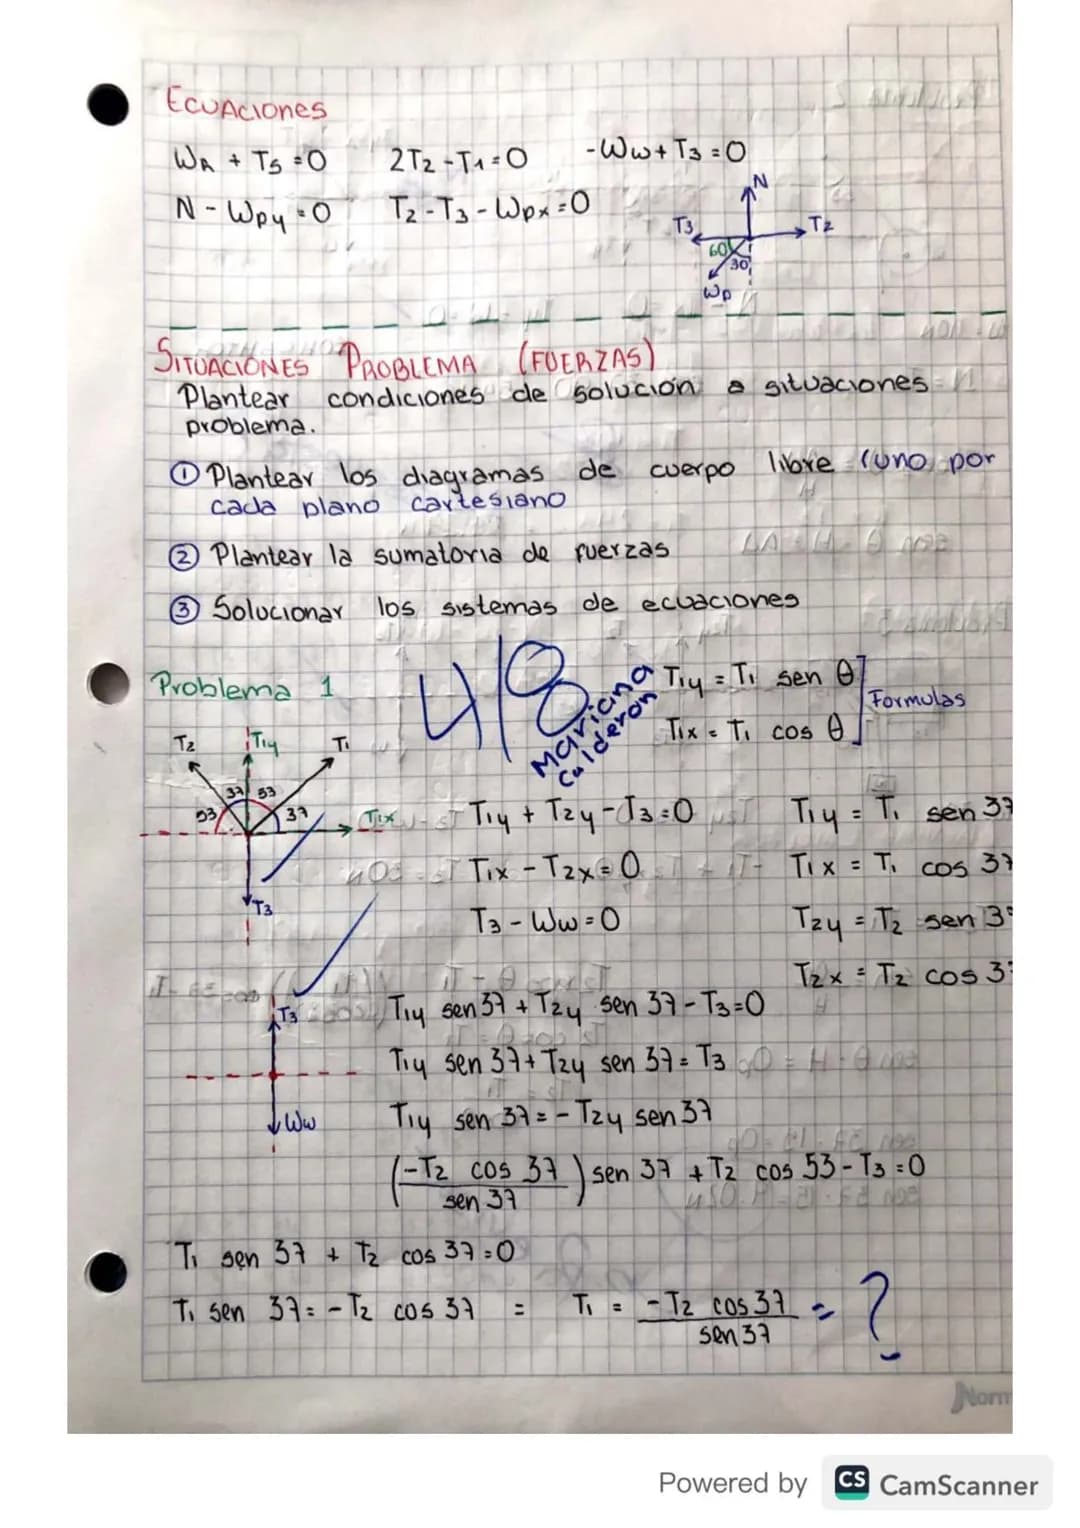 ECUACIONES
WA + T5 = 0   2T2 - T1 = 0   -Ww + T3 = 0
N - Wpy = 0   T2 - T3 - Wpx = 0
N
T3   T2
60
30
Wp
SITUACIONES PROBLEMA (FUERZAS)
Plantear condiciones de solución a situaciones
problema.
① Plantear los diagramas de cuerpo libre (uno por
cada plano cartesiano
② Plantear la sumatoria de fuerzas
③ Solucionar los sistemas de ecuaciones
Problema 1
4/8
Mariana
Calderon
T1y = T1 sen θ
T1x = T1 cos θ
Formulas
T2   T1y   T1
37 53
53   37
T1x
T3
T1y + T2y - T3 = 0   T1y = T1 sen 37
T1x - T2x = 0   T1x = T1 cos 37
T3 - Ww = 0   T2y = T2 sen 3
T2x = T2 cos 3
T3
Ww
T1y sen 37 + T2y sen 37 - T3 = 0
T1y sen 37 + T2y sen 37 = T3
T1y sen 37 = - T2y sen 37
(-T2 cos 37 / sen 37) sen 37 + T2 cos 53 - T3 = 0
T1 sen 37 + T2 cos 37 = 0
T1 sen 37 = - T2 cos 37 = T1 = -T2 cos 37 / sen 37 = ?
Norm
Powered by CS CamScanner